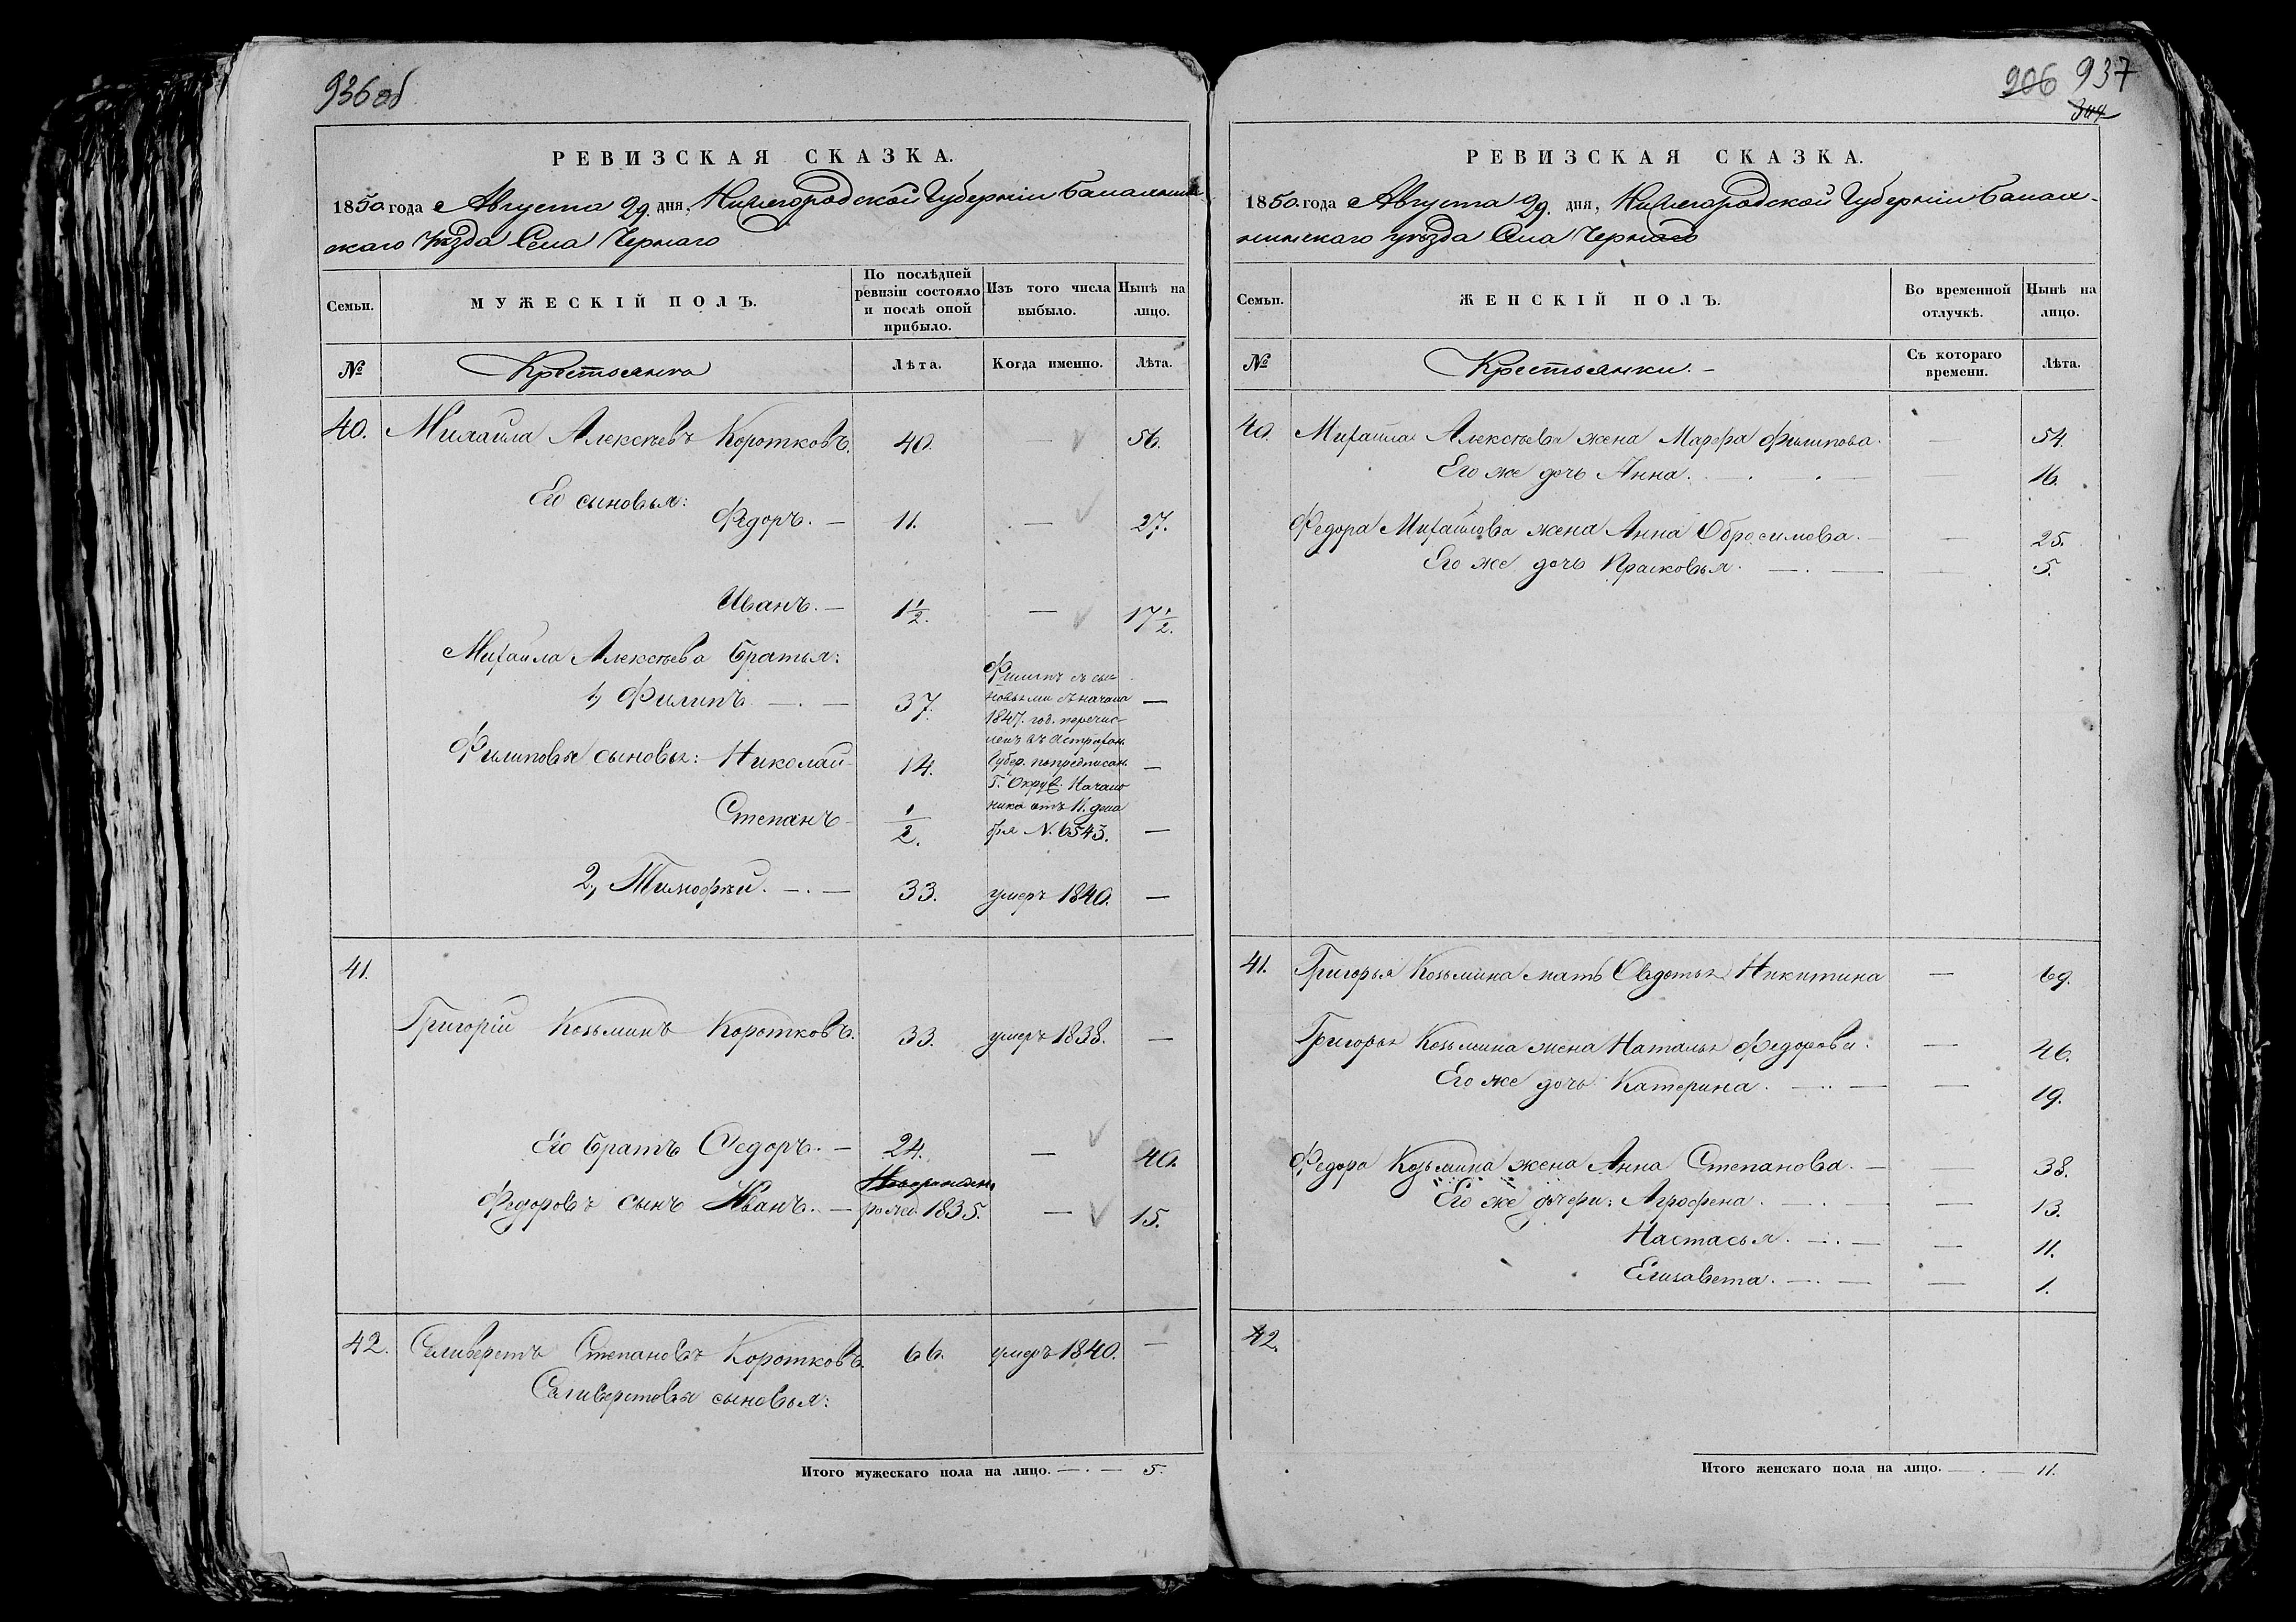 936 об
РЕВИЗСКАЯ СКАЗКА.
1850 года Августа 29 дня, Нижегородской Губерніи Балахнин
скаго Уѣзда Села Чернаго
Семьи.
МУЖЕСКІЙ ПОЛЪ.
По послѣдней
ревизіи состояло
и послѣ оной
прибыло.
Изъ того числа
выбыло.
Нынѣ на
лицо.
№
Крестьяне
Лѣта.
Когда именно.
Лѣта.
40. Михайла Алексѣевъ Коротковъ. 40. — 56.
Его сыновья:
Федоръ. — 11. — 27.
Иванъ. — 1 1/2. — 17 1/2.
Михаила Алексѣева братья:
1, Филипъ — 37. —
Филипъ съ сы
новьями съ начала
1847. год. перечис-
ленъ въ Астрахан.
Губер. по предписан.
Г. Окруж. Начальника
отъ 11. дека
бря N. 6543.
Филиповы сыновья: Николай 14. —
Степанъ 1/2. —
2, Тимофѣй. — 33. умеръ 1840. —
41.
Григорій Козьминъ Коротковъ. 33. умеръ 1838. —
Его братъ Федоръ. — 24. — 40.
Федоровъ сынъ Иванъ. — рожд. 1835. — 15.
42. Селиверстъ Степановъ Коротковъ. 66. умеръ 1840. —
Селиверстовы сыновья:
Итого мужескаго пола на лицо. — 5.
906 937
344
РЕВИЗСКАЯ СКАЗКА.
1850 года Августа 29 дня, Нижегородской Губерніи Балах-
нинскаго уѣзда Села Чернаго
Семьи.
ЖЕНСКІЙ ПОЛЪ.
Во временной
отлучкѣ.
Нынѣ на
лицо.
№
Крестьянки. —
Съ котораго
времени.
Лѣта.
40. Михайла Алексѣева жена Марфа Филипова. — 54.
Его же дочь Анна. — 16.
Федора Михайлова жена Анна Обросимова. — 25.
Его же дочь Прасковья. — 5.
41. Григорья Козьмина мать Овдотья Никитина — 69.
Григорья Козьмина жена Наталья Федорова. — 46.
Его же дочь Катерина. — 19.
Федора Козьмина жена Анна Степанова. — 38.
Его же дочери: Агрофена. — 13.
Настасья. — 11.
Елизавета. — 1.
42.
Итого женскаго пола на лицо. — 11.